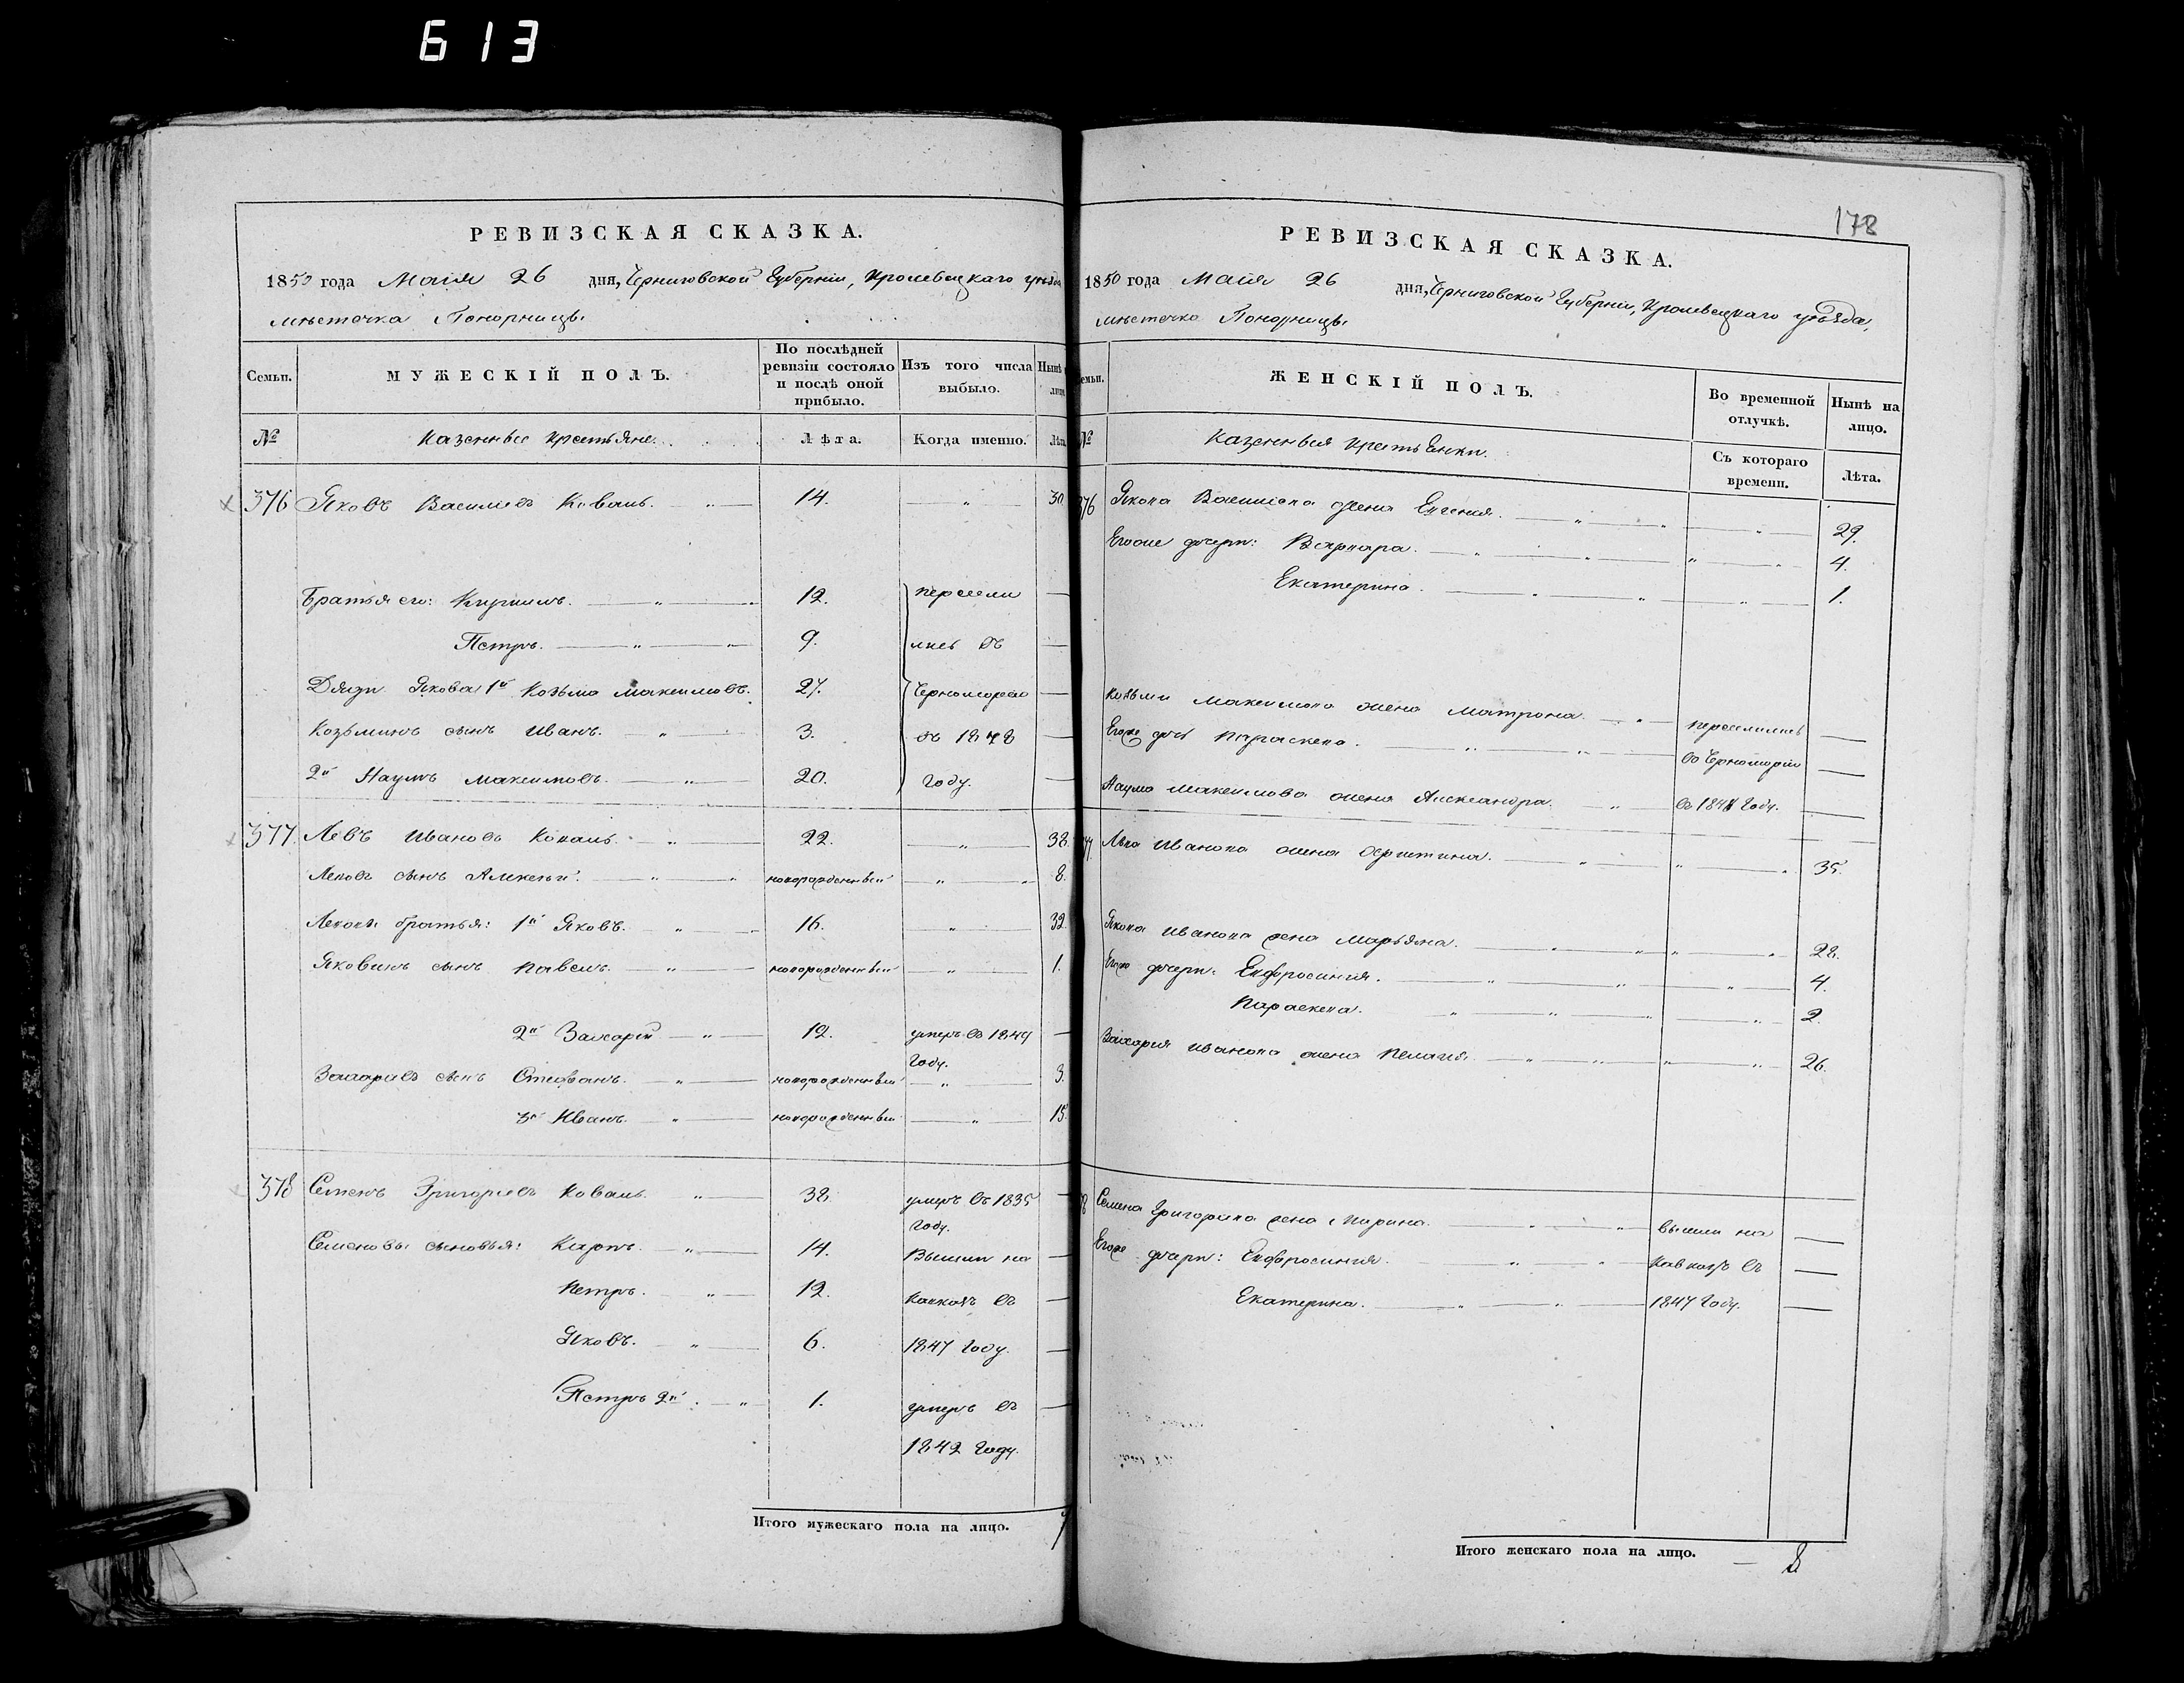 613
РЕВИЗСКАЯ СКАЗКА.
1850 года Маія 26 дня, Черниговской Губерніи, Кролевецкаго уѣзда
мѣстечка Понорницы
Семьи. МУЖЕСКІЙ ПОЛЪ. По послѣдней ревизіи состояло и послѣ оной прибыло. Изъ того числа выбыло. Нынѣ
№ Казенные крестьяне. Лѣта. Когда именно. Лѣта
376 Яковъ Василіевъ Коваль. 14. 30
Братья его: Кирилъ. 12. пересели
Петръ. 9. лись въ
Дяди Якова 1й Козьма Максимовъ. 27. Черноморію
Козьминъ сынъ Иванъ. 3. въ 1848
2й Наумъ Максимовъ. 20. году.
377 Левъ Ивановъ Коваль. 22. 38.
Левовъ сынъ Алексѣй. новорожденный 8.
Левовы братья: 1й Яковъ. 16. 32.
Яковинъ сынъ Павелъ. новорожденный 1.
2й Захарій 12. умеръ въ 1849
году.
Захаріевъ сынъ Стефанъ. новорожденный 3.
3й Иванъ. новорожденный 15.
378 Семенъ Григоріевъ Коваль. 38. умеръ въ 1835
году.
Семеновы сыновья: Карпъ. 14. Вышли на
Петръ. 12. Кавказъ въ
Яковъ. 6. 1847 году.
Петръ 2й. 1. умеръ въ
1842 году.
Итого мужескаго пола на лицо. 7
178
РЕВИЗСКАЯ СКАЗКА.
1850 года Маія 26 дня, Черниговской Губерніи, Кролевецкаго уѣзда,
мѣстечка Понорницы
емьи. ЖЕНСКІЙ ПОЛЪ. Во временной отлучкѣ. Нынѣ на лицо.
№ Казенныя крестьянки. Съ котораго времени. Лѣта.
376 Якова Василіева жена Евгенія. 29.
Егоже дочери: Варвара. 4.
Екатерина. 1.
Козьмы Максимова жена Матрона. переселились
Егоже дочь Параскева. въ Черноморію
Наума Максимова жена Александра. въ 1848 году.
Льва Иванова жена 35.
Якова Иванова жена Марьяна. 28.
Егоже дочери: Евфросинія. 4.
Параскева. 2.
Захарія Иванова жена Пелагія. 26.
8 Семена Григоріева жена Ирина. вышли на
Егоже дочери: Евфросинія. Кавказъ въ
Екатерина. 1847 году.
Итого женскаго пола на лицо. 8